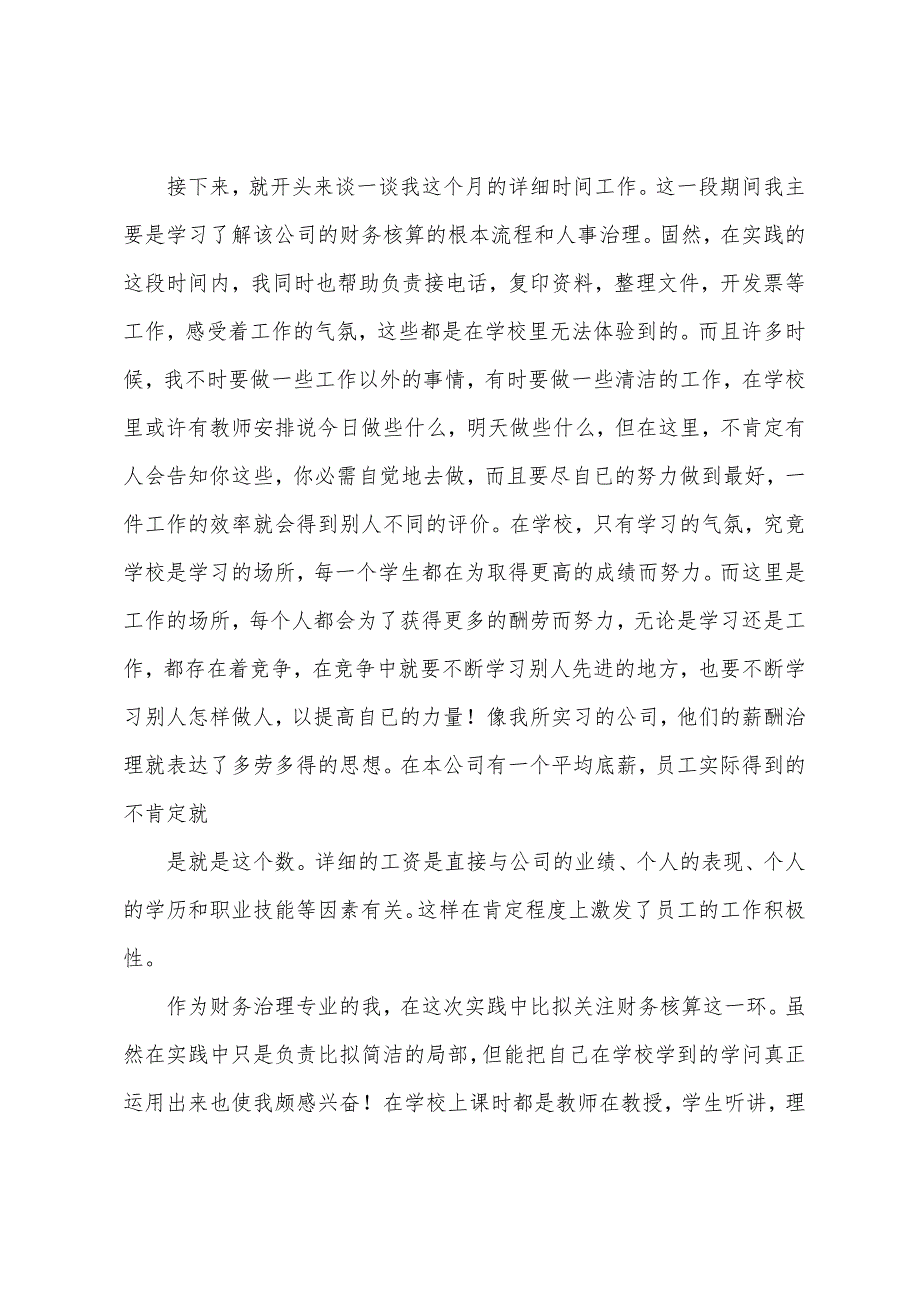 接下来，就开头来谈一谈我这个月的详细时间工作。这一段期间我主
要是学习了解该公司的财务核算的根本流程和人事治理。固然，在实践的
这段时间内，我同时也帮助负责接电话，复印资料，整理文件，开发票等
工作，感受着工作的气氛，这些都是在学校里无法体验到的。而且许多时
候，我不时要做一些工作以外的事情，有时要做一些清洁的工作，在学校
里或许有教师安排说今日做些什么，明天做些什么，但在这里，不肯定有
人会告知你这些，你必需自觉地去做，而且要尽自已的努力做到最好，一
件工作的效率就会得到别人不同的评价。在学校，只有学习的气氛，究竟
学校是学习的场所，每一个学生都在为取得更高的成绩而努力。而这里是
工作的场所，每个人都会为了获得更多的酬劳而努力，无论是学习还是工
作，都存在着竞争，在竞争中就要不断学习别人先进的地方，也要不断学
习别人怎样做人，以提高自已的力量！像我所实习的公司，他们的薪酬治
理就表达了多劳多得的思想。在本公司有一个平均底薪，员工实际得到的
不肯定就
是就是这个数。详细的工资是直接与公司的业绩、个人的表现、个人
的学历和职业技能等因素有关。这样在肯定程度上激发了员工的工作积极
性。
作为财务治理专业的我，在这次实践中比拟关注财务核算这一环。虽
然在实践中只是负责比拟简洁的局部，但能把自己在学校学到的学问真正
运用出来也使我颇感兴奋！在学校上课时都是教师在教授，学生听讲，理